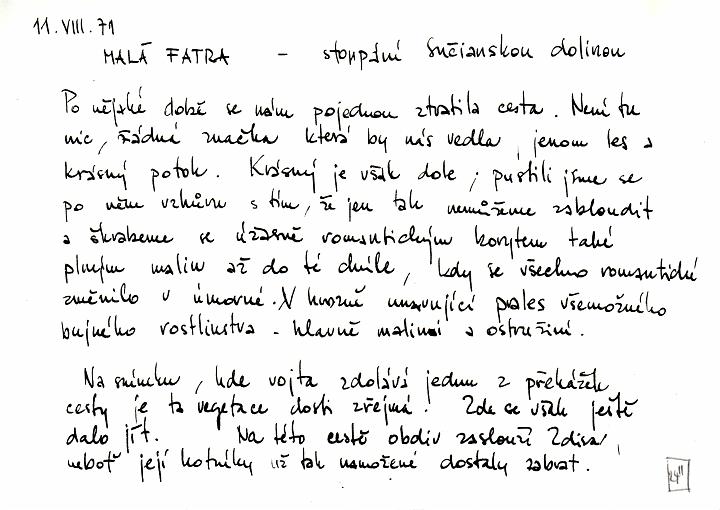 11.VIII.71
MALÁ FATRA - stoupání Sučianskou dolinou
Po nějaké době se nám pojednou ztratila cesta. Není tu
nic, žádná značka která by nás vedla, jenom les a
krásný potok. Krásný je však dole; pustili jsme se
po něm vzhůru s tím, že jen tak nemůžeme zabloudit
a škrabeme se úžasně romantickým korytem také
plným malin až do té chvíle, kdy se všechno romantické
změnilo v úmorné. V hrozně unavující prales všemožného
bujného rostlinstva - hlavně maliní a ostružiní.
Na snímku, kde vojta zdolává jednu z překážek
cesty je ta vegetace dosti zřejmá. Zde se však ještě
dalo jít. Na této cestě obdiv zaslouží Zdisa,
neboť její kotníky už tak namožené dostaly zabrat.